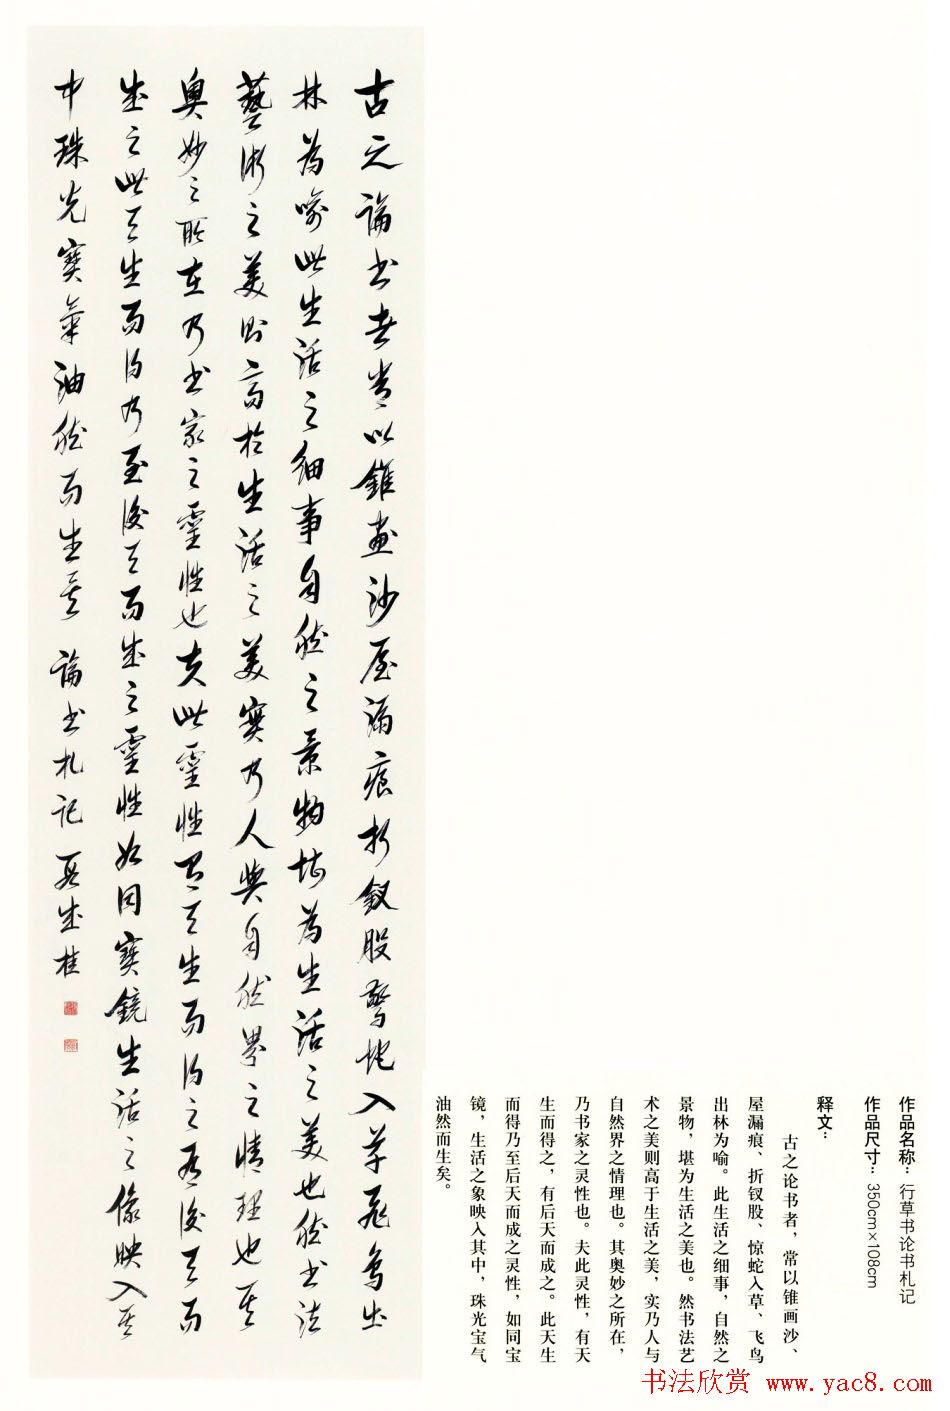 古之論書者常以錐畫沙屋漏痕折釵股驚蛇入草飛鳥出
林為喻此生活之細事自然之景物堪為生活之美也然書法
藝術之美則高於生活之美實乃人與自然界之情理也其
奧妙之所在乃書家之靈性也夫此靈性有天生而得之有後天而
成之此天生而得乃至後天而成之靈性如同寶鏡生活之像映入其
中珠光寶氣油然而生矣 論書札記 成桂
作品名称：行草书论书札记
作品尺寸：350cm×108cm
释文：
古之论书者，常以锥画沙、
屋漏痕、折钗股、惊蛇入草、飞鸟
出林为喻。此生活之细事，自然之
景物，堪为生活之美也。然书法艺
术之美则高于生活之美，实乃人与
自然界之情理也。其奥妙之所在，
乃书家之灵性也。夫此灵性，有天
生而得之，有后天而成之。此天生
而得乃至后天而成之灵性，如同宝
镜，生活之象映入其中，珠光宝气
油然而生矣。
书法欣赏 www.yac8.com